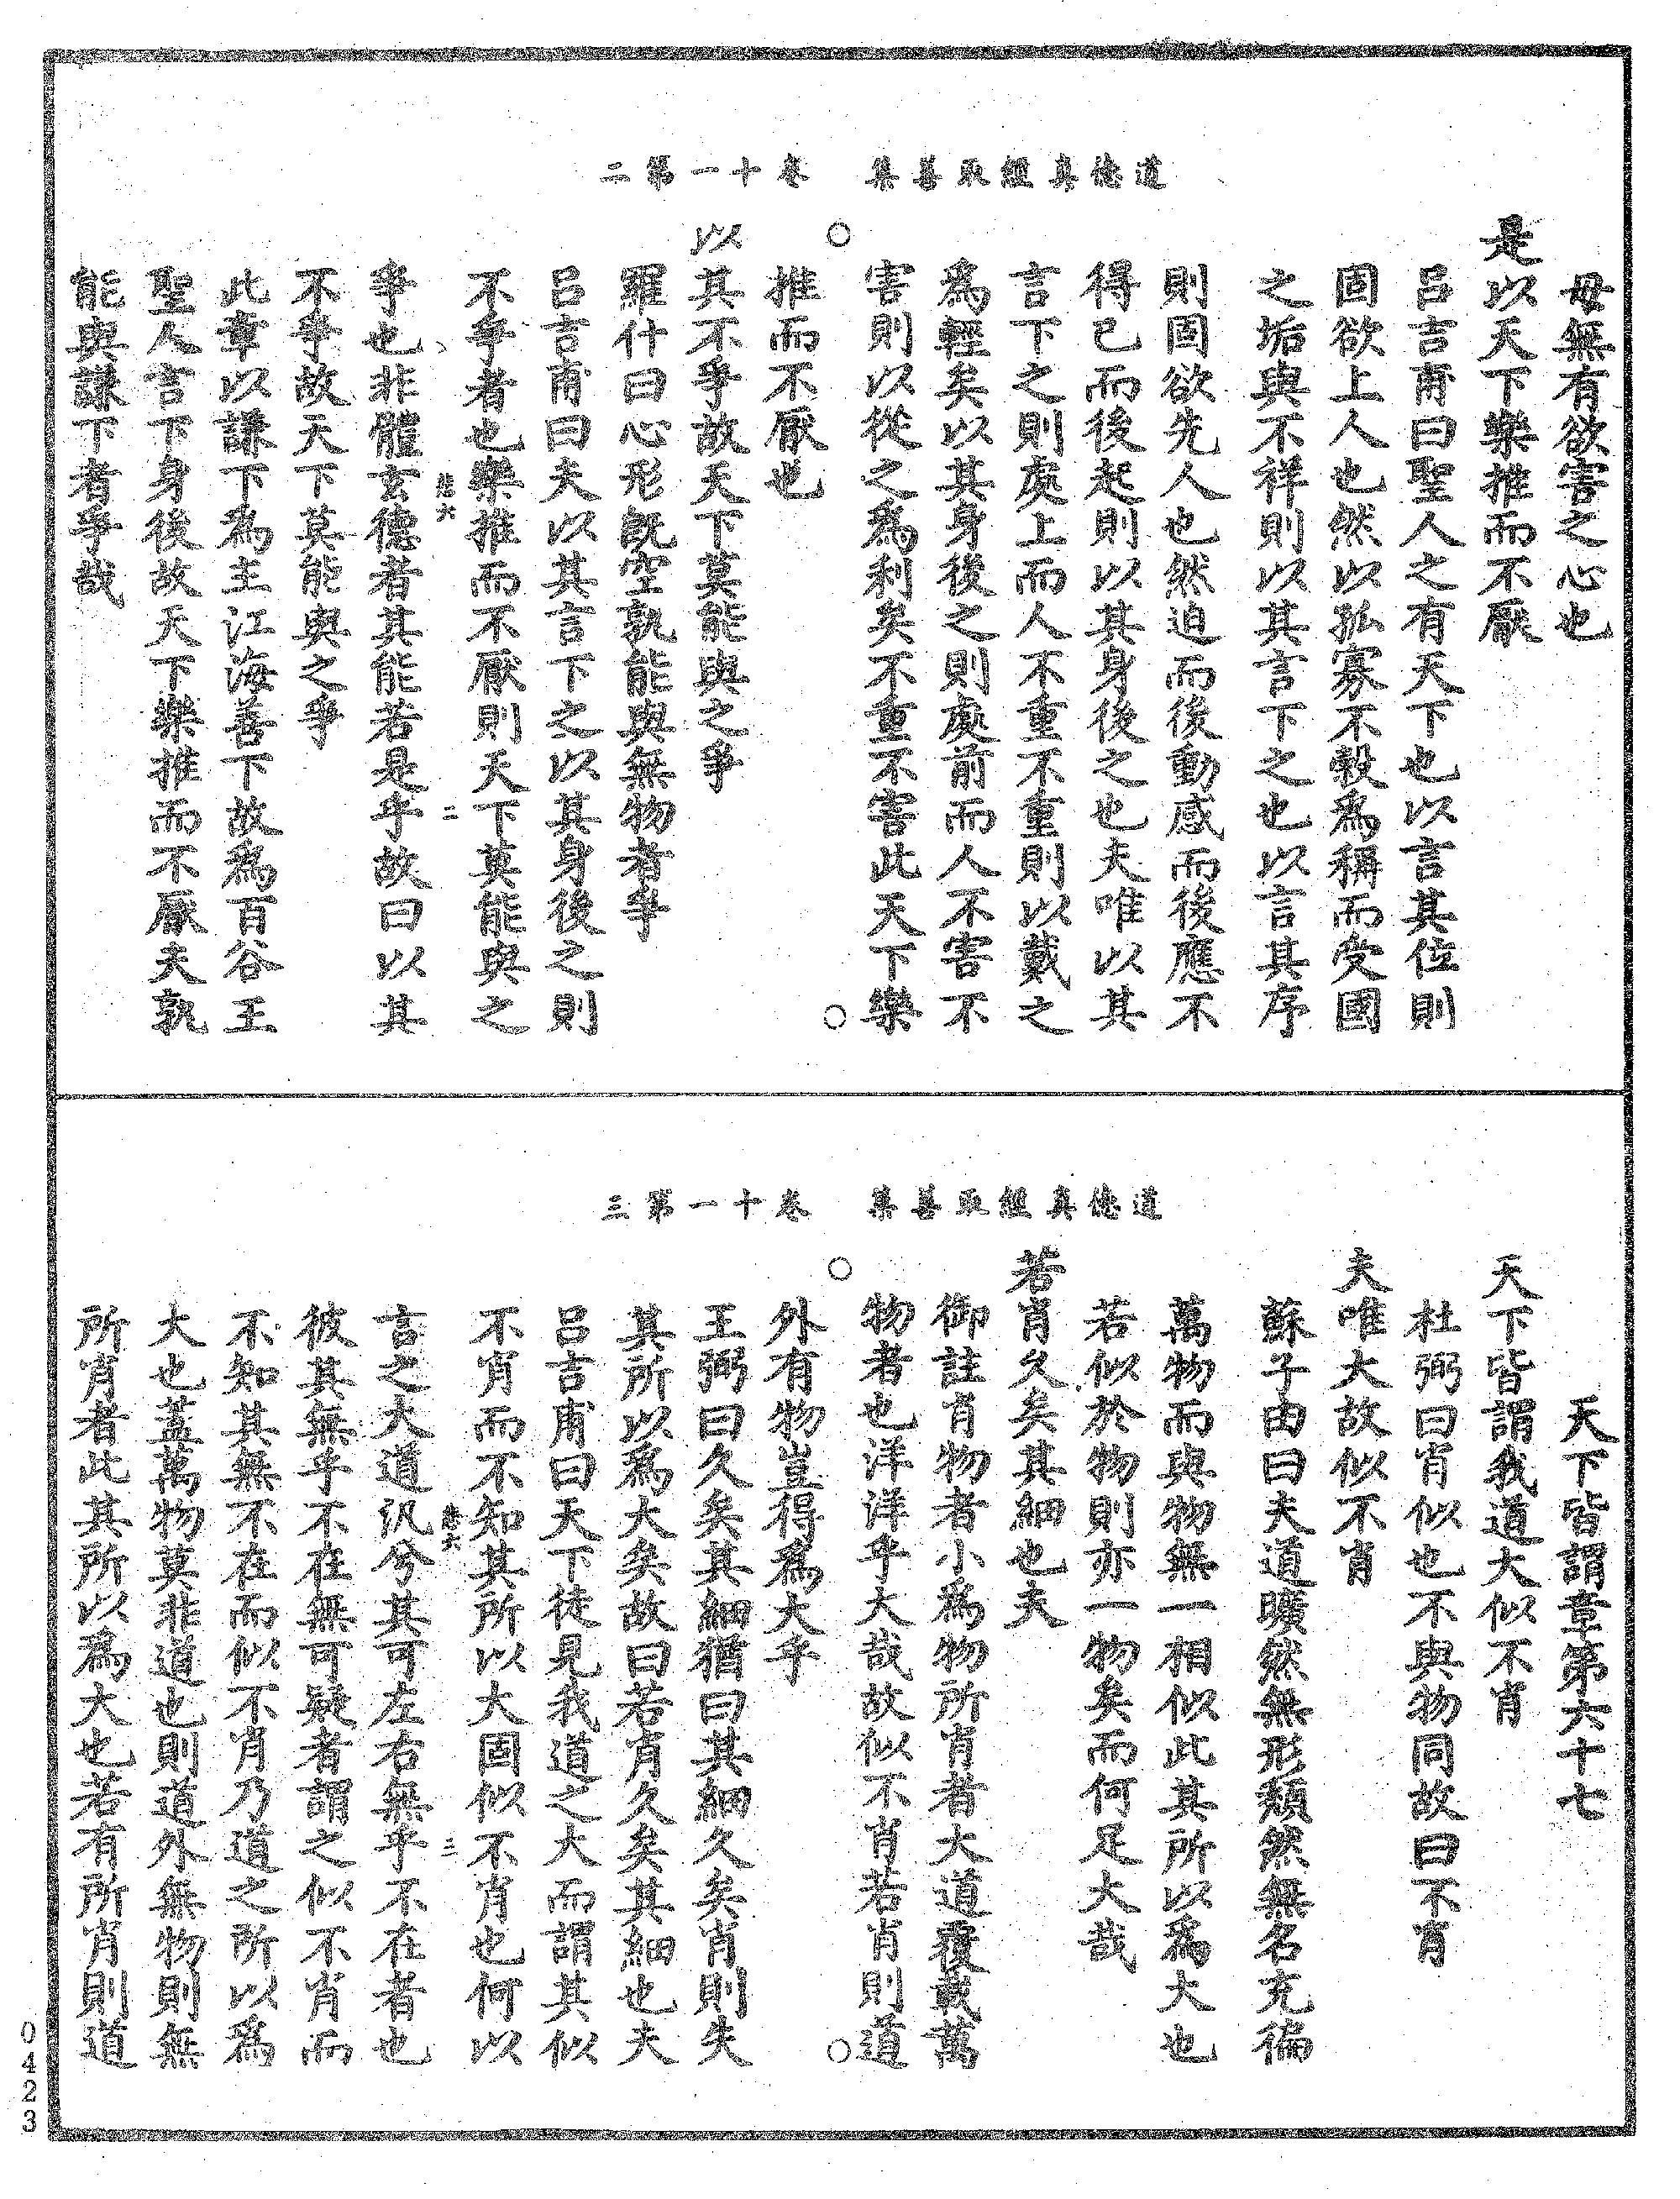 道德真經取善集　卷十一第二
毋無有欲害之心也
是以天下樂推而不厭
呂吉甫曰聖人之有天下也以言其位則
固欲上人也然以孤寡不穀爲稱而受國
之垢與不祥則以其言下之也以言其序
則固欲先人也然迫而後動感而後應不
得已而後起則以其身後之也夫唯以其
言下之則處上而人不重不重則以戴之
爲輕矣以其身後之則處前而人不害不
害則以從之爲利矣不重不害此天下樂
推而不厭也
以其不爭故天下莫能與之爭
羅什曰心形旣空孰能與無物者爭
呂吉甫曰夫以其言下之以其身後之則
不爭者也樂推而不厭則天下莫能與之
爭也非體玄德者其能若是乎故曰以其
不爭故天下莫能與之爭
此章以謙下爲主江海善下故爲百谷王
聖人言下身後故天下樂推而不厭夫孰
能與謙下者爭哉
道德真經取善集　卷十一第三
天下皆謂章第六十七
天下皆謂我道大似不肖
杜弼曰肖似也不與物同故曰不肖
夫唯大故似不肖
蘇子由曰夫道曠然無形頹然無名充徧
萬物而與物無一相似此其所以爲大也
若似於物則亦一物矣而何足大哉
若肖久矣其細也夫
御註肖物者小爲物所肖者大道覆載萬
物者也洋洋乎大哉故似不肖若肖則道
外有物豈得爲大乎
王弼曰久矣其細猶曰其細久矣肖則失
其所以爲大矣故曰若肖久矣其細也夫
呂吉甫曰天下徒見我道之大而謂其似
不肖而不知其所以大固似不肖也何以
言之大道汎兮其可左右無乎不在者也
彼其無乎不在無可疑者謂之似不肖而
不知其無不在而似不肖乃道之所以爲
大也蓋萬物莫非道也則道外無物則無
所肖者此其所以爲大也若有所肖則道
0423